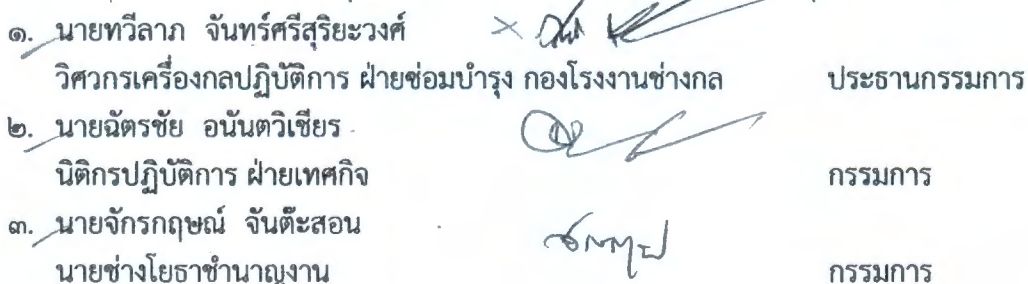 ๑. นายทวีลาภ จันทร์ศรีสุริยะวงศ์
วิศวกรเครื่องกลปฏิบัติการ ฝ่ายซ่อมบำรุง กองโรงงานช่างกล ประธานกรรมการ
๒. นายฉัตรชัย อนันตวิเชียร
นิติกรปฏิบัติการ ฝ่ายเทศกิจ กรรมการ
๓. นายจักรกฤษณ์ จันต๊ะสอน
นายช่างโยธาชำนาญงาน กรรมการ